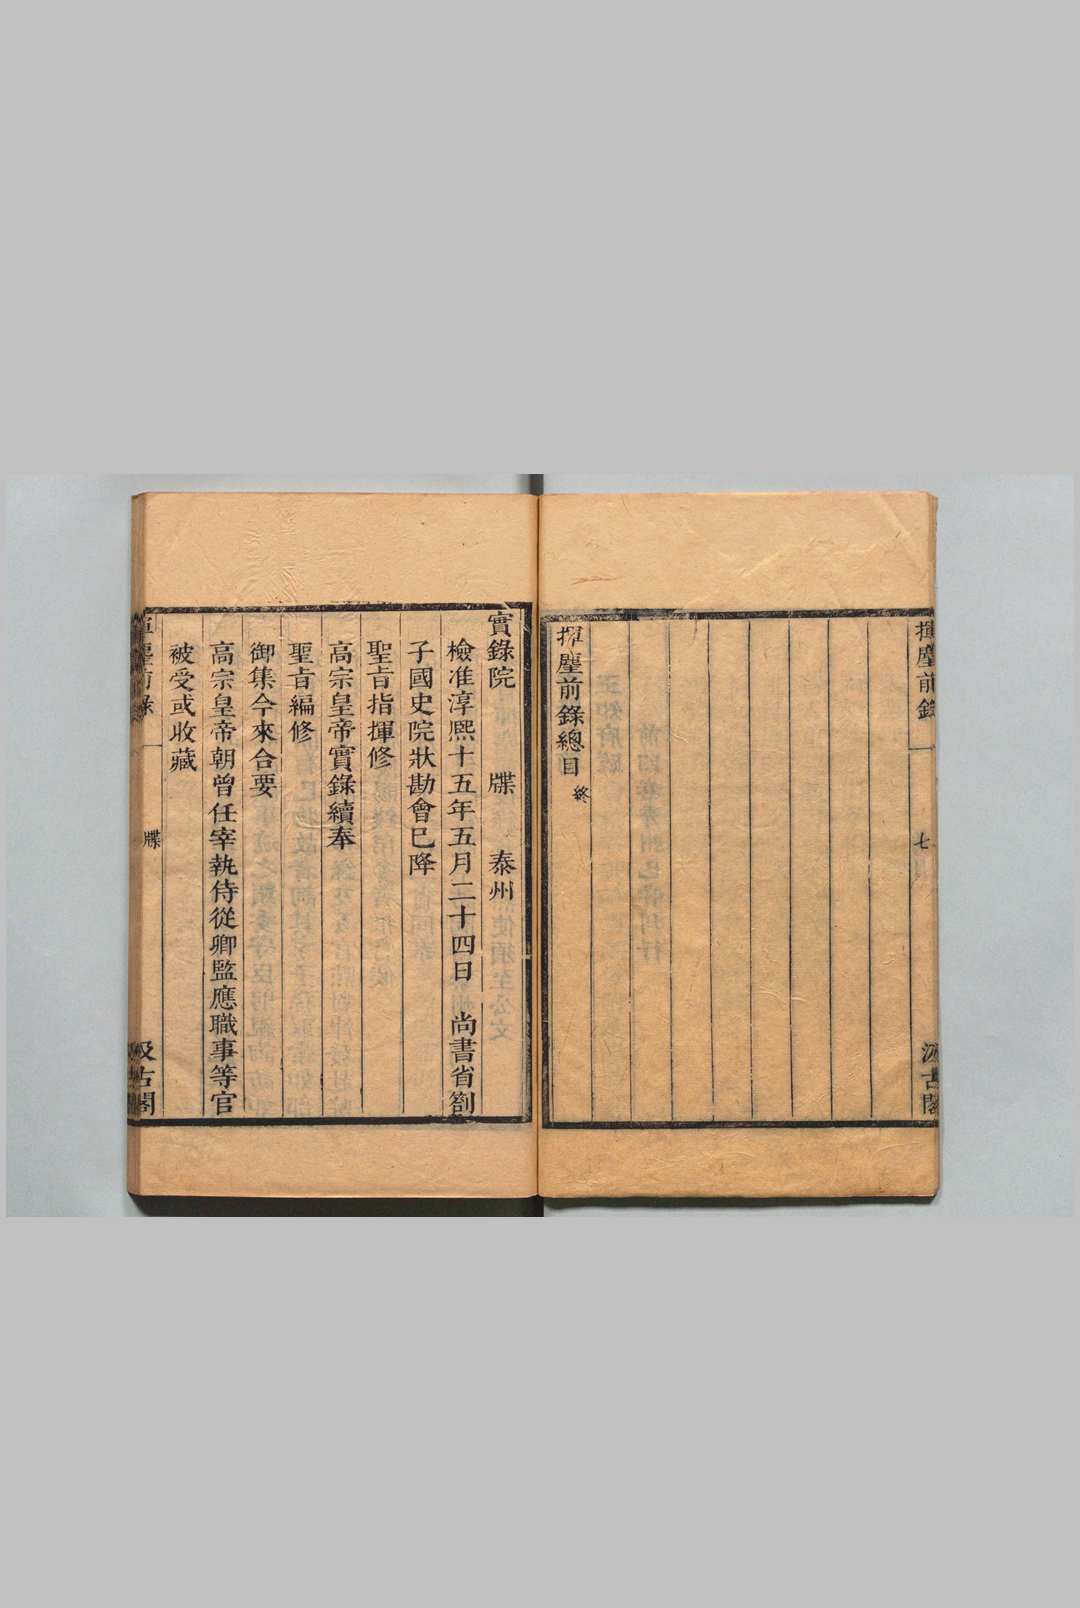 揮麈前錄
七
汲古閣
揮麈前錄總目 終
實錄院 牒 泰州
檢准淳熙十五年五月二十四日尚書省劄
子國史院狀勘會已降
聖旨指揮修
高宗皇帝實錄續奉
聖旨編修
御集今來合要
高宗皇帝朝曾任宰執侍從卿監應職事等官
被受或收藏
揮麈前錄
牒
一
汲古閣